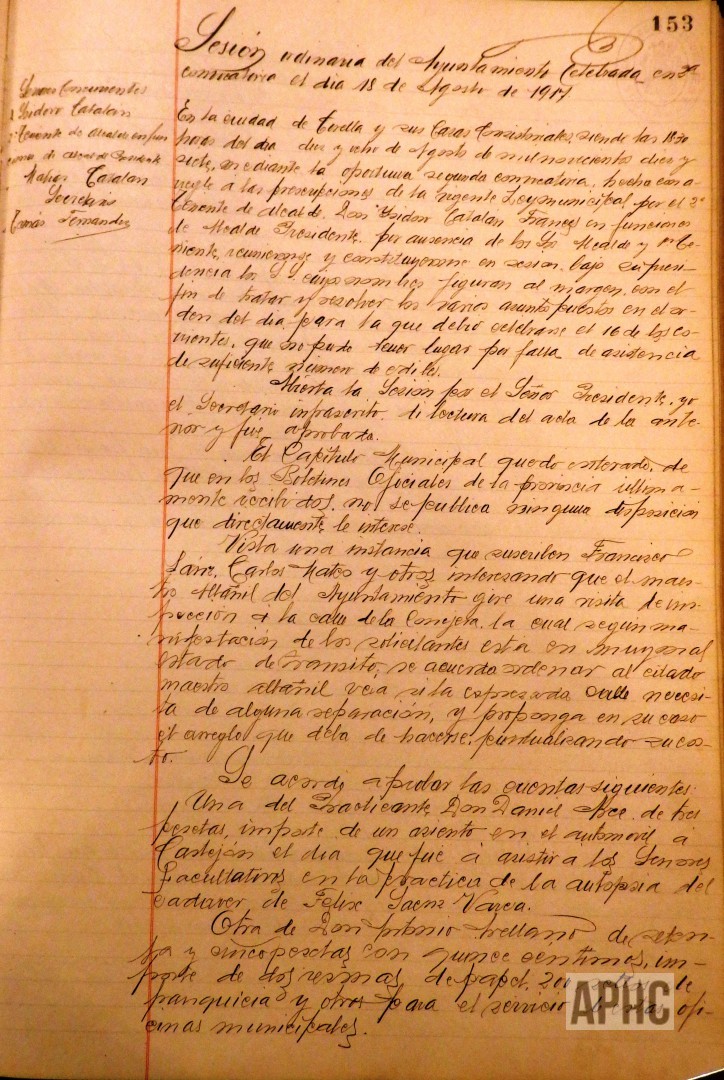 153
Sesión ordinaria del Ayuntamiento Celebrada en 2ª
convocatoria el dia 18 de Agosto de 1917
Señores Concurrentes
Isidoro Catalan
Teniente de Alcalde en fun
ciones de Alcalde Presidente
Matias Catalan
Secretario
Fernandez
En la ciudad de Corella y sus Casas Consistoriales, siendo las
horas del dia diez y ocho de Agosto de mil novecientos diez y
siete, mediante la oportuna segunda convocatoria, hecha con a-
rreglo a las prescripciones de la vigente Ley municipal por el 2º
Teniente de Alcalde, Don Isidoro Catalan Frances en funciones
de Alcalde Presidente, por ausencia de los Sres Alcalde y 1er Te-
niente, reunieronse y constituyeronse en sesion, bajo su presi-
dencia los S.S. cuyos nombres figuran al margen, con el
fin de tratar y resolver los varios asuntos puestos en el or-
den del dia para la que debió celebrarse el 16 de los co-
rrientes, que no pudo tener lugar por falta de asistencia
de suficiente número de ediles.
Abierta la Sesion por el Señor Presidente, yo
el Secretario infrascrito di lectura del acta de la ante-
rior y fué aprobada.
El Capitulo Municipal quedó enterado, de
que en los Boletines Oficiales de la provincia ultima-
mente recibidos, no se publica ninguna disposición
que directamente le interese.
Vista una instancia que suscriben Francisco
Sainz, Carlos Mateo y otros interesando que el maes-
tro Albañil del Ayuntamiento gire una visita de ins-
pección á la calle de la Conejera, la cual segun ma-
nifestación de los solicitantes está en muy mal
estado de transito, se acuerda ordenar al citado
maestro albañil vea si la expresada calle necesi-
ta de alguna reparación, y proponga en su caso
el arreglo que deba de hacerse, puntualizando su cos-
to.
Se acordó aprobar las cuentas siguientes:
Una del Practicante, Don Daniel Arce, de tres
pesetas, importe de un asiento en el automovil á
Castejón el dia que fué á asistir a los Señores
Facultativos en la practica de la autopsia del
cadaver de Felix Saenz Varea.
Otra de Don Antonio Arellano de seten-
ta y cinco pesetas con quince centimos, im-
porte de dos resmas de papel, de
franquicia y otros para el servicio de las ofi-
cinas municipales.
APHC